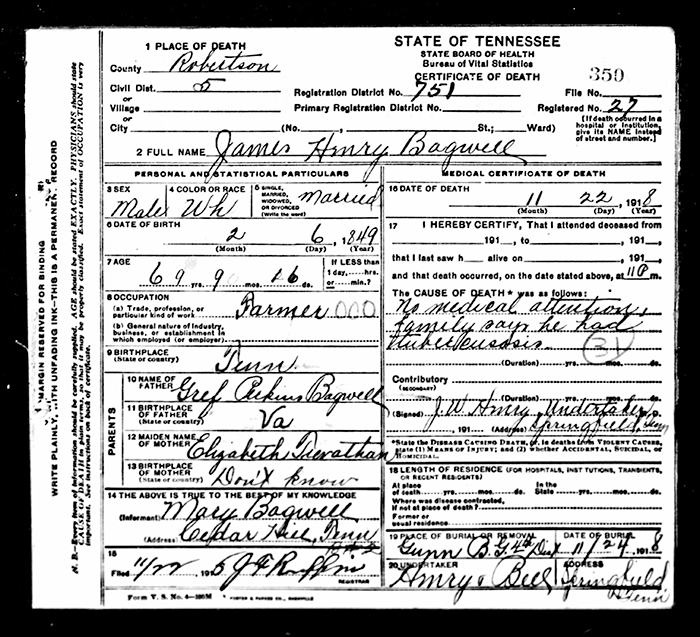 STATE OF TENNESSEE
STATE BOARD OF HEALTH
Bureau of Vital Statistics
CERTIFICATE OF DEATH
1 PLACE OF DEATH
County Robertson
Civil Dist. 5
or
Village
or
City (No. , St.; Ward)
Registration District No. 751
Primary Registration District No.
350
File No.
Registered No. 27
[If death occurred in a
hospital or institution,
give its NAME instead
of street and number.]
2 FULL NAME James Henry Bagwell
PERSONAL AND STATISTICAL PARTICULARS
3 SEX
Male
4 COLOR OR RACE
Wh
5 SINGLE,
MARRIED,
WIDOWED,
OR DIVORCED
(Write the word)
Married
6 DATE OF BIRTH
2 6, 1849
(Month) (Day) (Year)
7 AGE
69 yrs. 9 mos. 16 ds.
If LESS than
1 day,....hrs.
or.....min.?
8 OCCUPATION
(a) Trade, profession, or
particular kind of work Farmer 000
(b) General nature of industry,
business, or establishment in
which employed (or employer)
9 BIRTHPLACE
(State or country) Tenn
PARENTS
10 NAME OF
FATHER Bagwell
11 BIRTHPLACE
OF FATHER
(State or country) Va
12 MAIDEN NAME
OF MOTHER Elizabeth Trevathan
13 BIRTHPLACE
OF MOTHER
(State or country) Don't know
14 THE ABOVE IS TRUE TO THE BEST OF MY KNOWLEDGE
(Informant) Mary Bagwell
(Address) Cedar Hill, Tenn
15
Filed 11/22 191
REGISTRAR
Form V. S. No. 4—
MEDICAL CERTIFICATE OF DEATH
16 DATE OF DEATH
11 22, 1918
(Month) (Day) (Year)
17 I HEREBY CERTIFY, That I attended deceased from
191 , to 191 ,
that I last saw h alive on 191 ,
and that death occurred, on the date stated above, at 11 P m.
The CAUSE OF DEATH * was as follows:
No medical attention,
family says he had
tuberculosis
31
(Duration) yrs. mos. ds.
Contributory
(SECONDARY)
(Duration) yrs. mos. ds.
(Signed) J. W. Henry, Undertaker
, 191 (Address) Springfield, Tenn
*State the DISEASE CAUSING DEATH, or, in deaths from VIOLENT CAUSES,
state (1) MEANS OF INJURY; and (2) whether ACCIDENTAL, SUICIDAL, or
HOMICIDAL.
18 LENGTH OF RESIDENCE (FOR HOSPITALS, INSTITUTIONS, TRANSIENTS,
OR RECENT RESIDENTS)
At place
of death yrs. mos. ds.
In the
State yrs. mos. ds.
Where was disease contracted,
if not at place of death?
Former or
usual residence
19 PLACE OF BURIAL OR REMOVAL
Gunn B.G. 4th Dist
DATE OF BURIAL
11/24 1918
20 UNDERTAKER
Henry & Bell
Springfield
Tenn
MARGIN RESERVED FOR BINDING
WRITE PLAINLY, WITH UNFADING INK—THIS IS A PERMANENT RECORD
N. B.—Every item of information should be carefully supplied. AGE should be stated EXACTLY. PHYSICIANS should state
CAUSE OF DEATH in plain terms, so that it may be properly classified. Exact statement of OCCUPATION is very
important. See instructions on back of certificate.